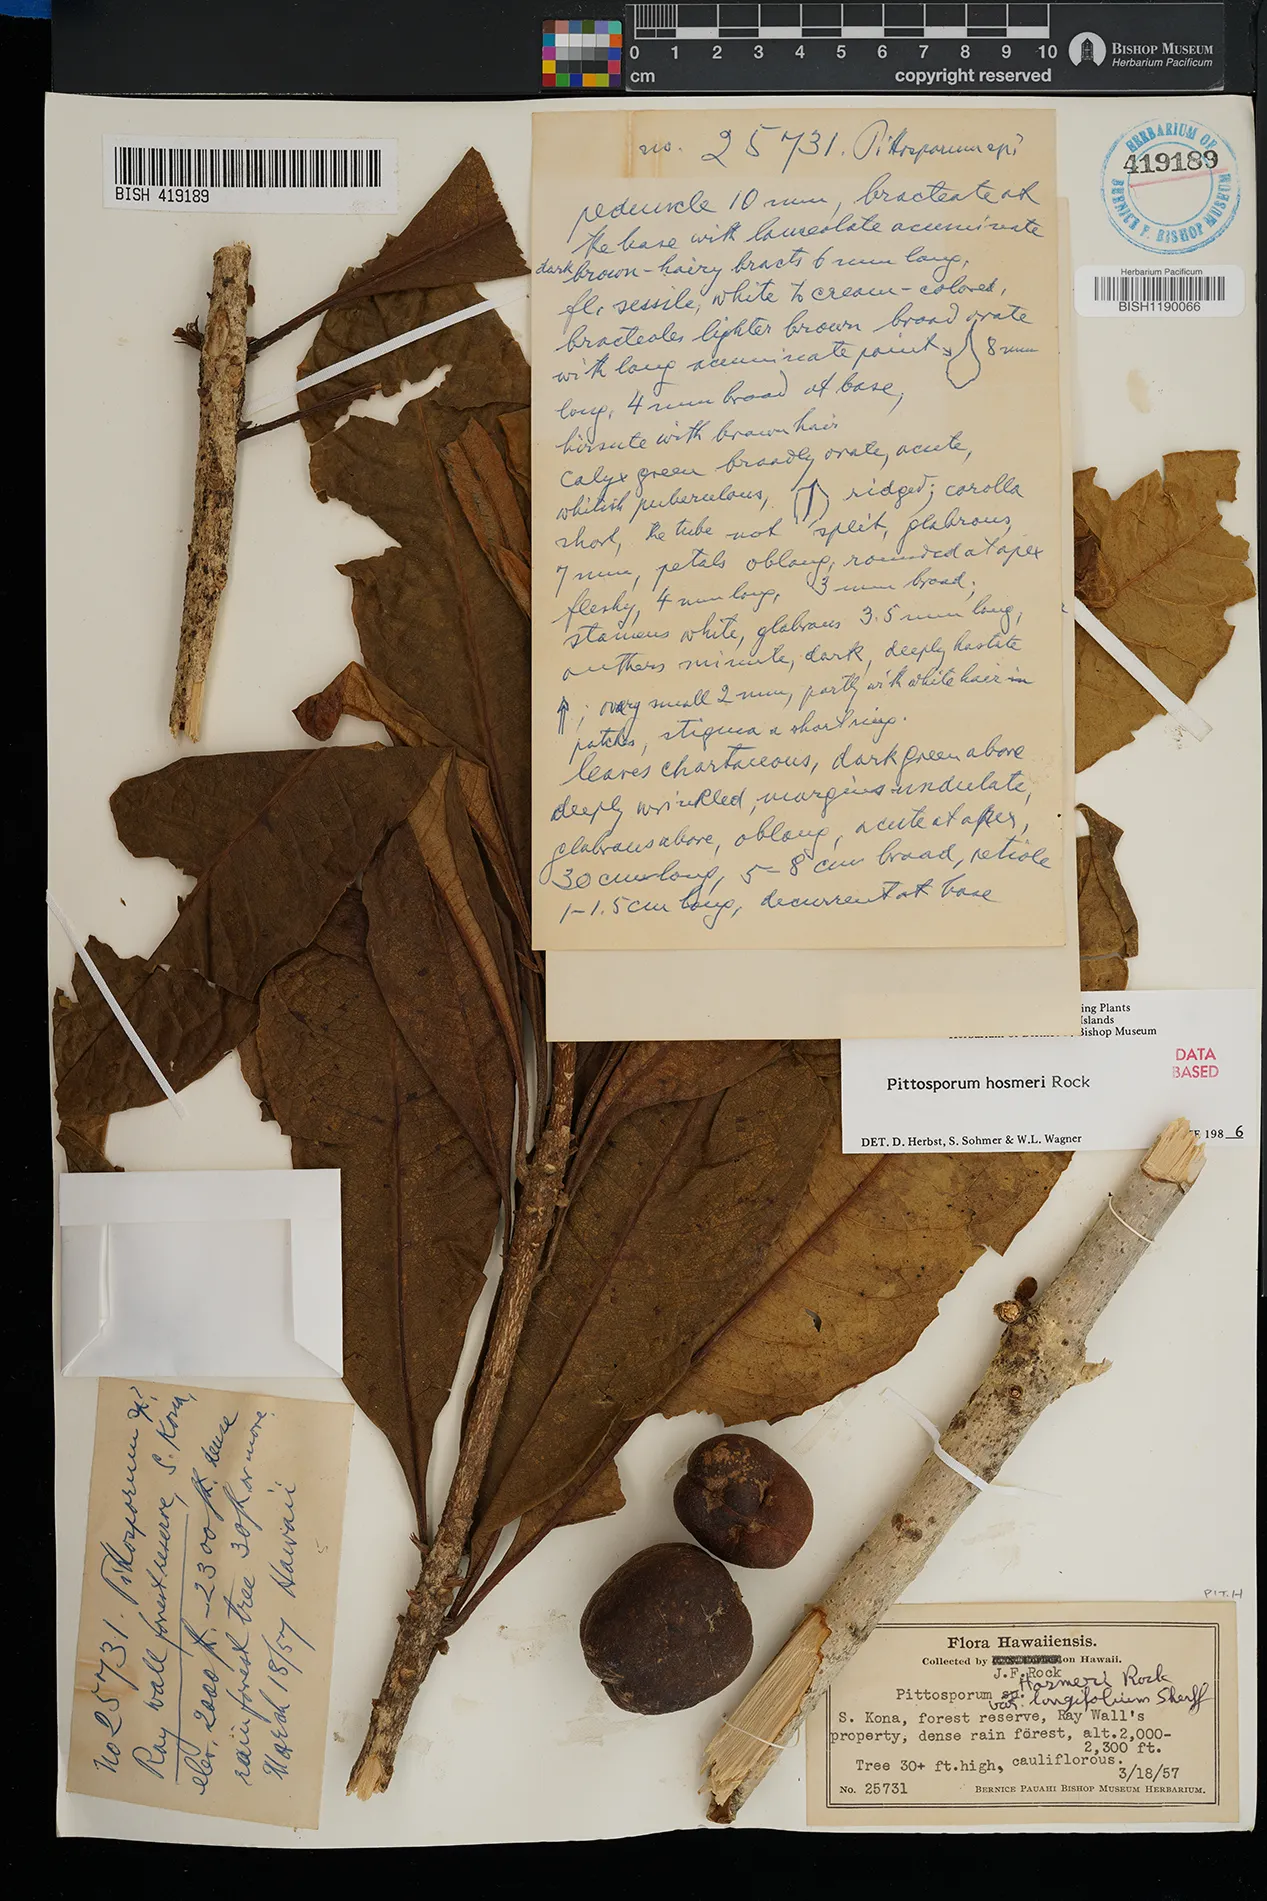 0 1 2 3 4 5 6 7 8 9 10
cm
copyright reserved
BISHOP MUSEUM
Herbarium Pacificum
BISH 419189
HERBARIUM OF
419189
BERNICE P. BISHOP MUSEUM
Herbarium Pacificum
BISH1190066
no. 25731. Pittosporum sp?
peduncle 10 mm, bracteate at
the base with lanceolate acuminate
dark brown-hairy bracts 6 mm long,
fl. sessile, white to cream-colored,
bracteoles lighter brown broad ovate
with long acuminate point 8 mm
long, 4 mm broad at base,
hirsute with brown hair
Calyx green broadly ovate, acute,
whitish puberulous, ridged; corolla
short, the tube not split, glabrous,
7 mm, petals oblong, rounded at apex
fleshy, 4 mm long, 3 mm broad;
stamens white, glabrous 3.5 mm long,
anthers minute, dark, deeply hastate
↑; ovary small 2 mm, partly with white hair in
patches, stigma a short ring.
leaves chartaceous, dark green above
deeply wrinkled, margins undulate,
glabrous above, oblong, acute at apex,
30 cm long, 5-8 cm broad, petiole
1-1.5 cm long, decurrent at base
ing Plants
Islands
Bishop Museum
DATA
BASED
Pittosporum hosmeri Rock
DET. D. Herbst, S. Sohmer & W.L. Wagner
198 6
no 25731. Pittosporum sp?
Ray Wall forest reserve, S. Kona,
elev. 2000 ft - 2300 ft. dense
rain forest tree 30 ft or more
March 18/57 Hawaii
PIT.H
Flora Hawaiiensis.
Collected by on Hawaii.
J.F.Rock
Pittosporum sp. Hosmeri Rock
var. longifolium Sherff
S. Kona, forest reserve, Ray Wall's
property, dense rain forest, alt.2,000-
2,300 ft.
Tree 30+ ft.high, cauliflorous.
3/18/57
No. 25731 BERNICE PAUAHI BISHOP MUSEUM HERBARIUM.